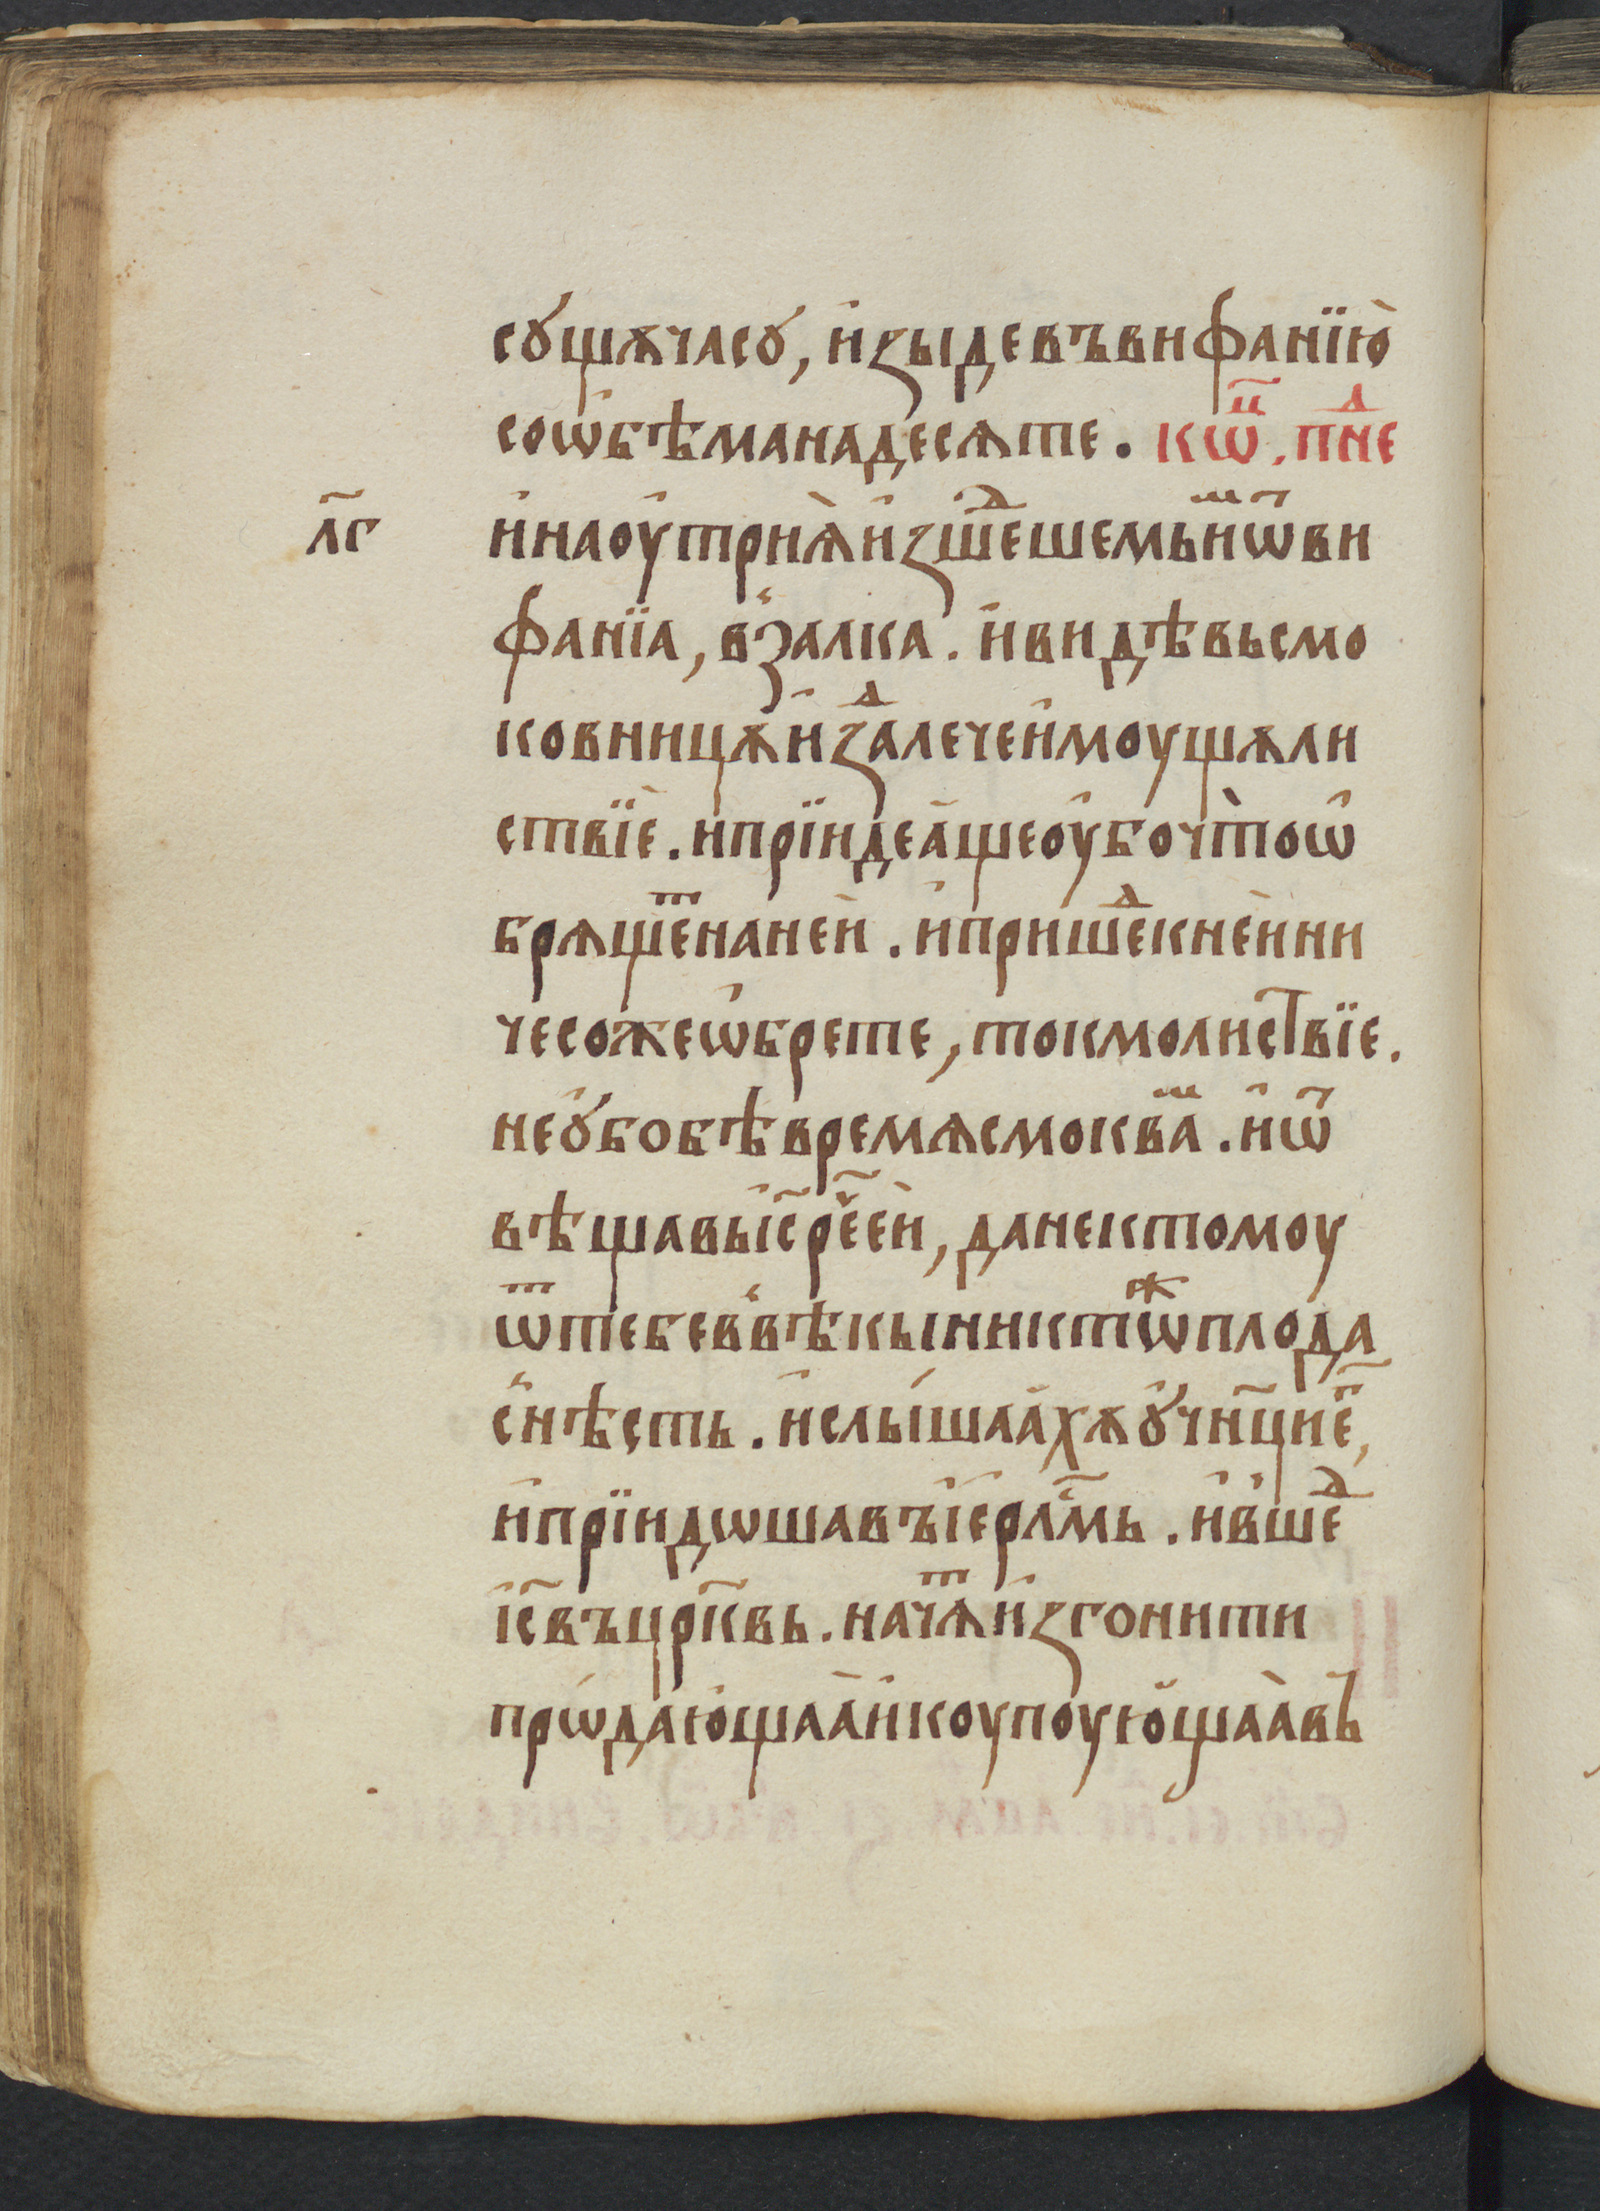 сꙋщѫчасꙋ, и҆ꙁыдевъвнфанїю̀
соѡ҆бѣманадесѧте. кѡⷰ҇. пнⷣе
л҃г и҆наоу҆трнѧ̀и҆ꙁшеⷣшемьи҆мⷨѿвн
фанїа, в̾ꙁалка. и҆видѣвьсмо
ковницѫи҆ꙁⷣалечеи҆моущѫли
ствїѐ. ипрїидеа҆щеоу҆бочто̀ѡ҆
брѧщеⷮнанеи҆. и҆пришеⷣкнеи҆ни
чесожеѡ҆брете, токмолис҇твїе.
неꙋ҆бобѣвремѧсмоквⷨа. и҆ѿ
вѣщавьі҆с҃ре҃чеи҆, данектомоу
ѿтебев̾вѣкыниктоⷤѡ҆плода
с̾нѣсть. и҆слы́шаа҆хѫꙋ҆чн҃цие҆г҃,
и҆прїидѡшавъі҆ерлⷭ҇мь. и҆в̾шеⷣ
і҆с҃въцр҃квь. начѧⷮи҆ꙁгонити
прѡ҆даю҆щаа҆и҆коупоую҆щаа҆въ